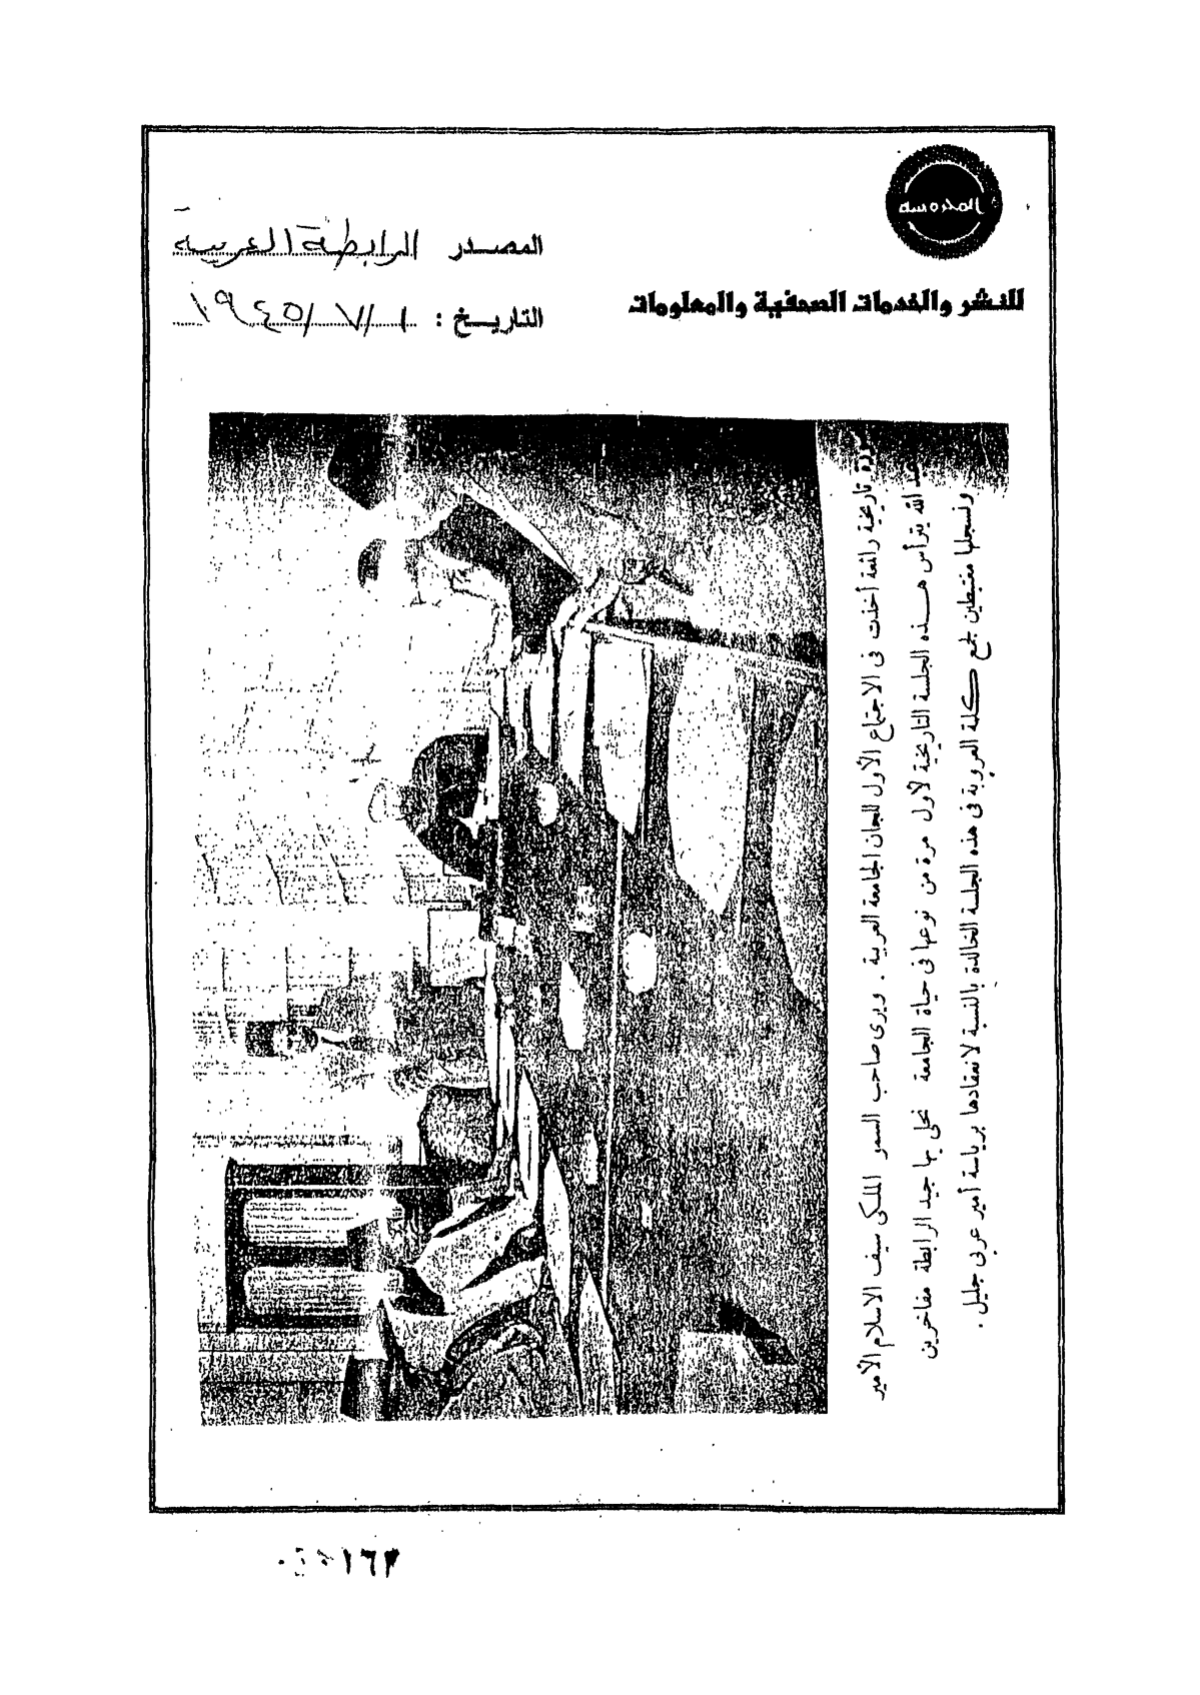 المحروسة
للنشر والخدمات الصحفية والمعلومات
المصدر الرابطة العربية
التاريخ : ١ / ٧ / ١٩٤٥
صورة تاريخية رائعة أخذت فى الاجتماع الأول للجان الجامعة العربية . ويرى صاحب السمو الملكى سيف الاسلام الأمير
عبد الله يترأس هــذه الجلسة التاريخية لأول مرة من نوعها فى حياة الجامعة نحلى بها جيد الرابطة مفاخرين
ونسجلها مغتبطين لجمع كلمة العروبة فى هذه الجلسة الخالدة بالنسبة لانعقادها برياسة أمير عربى جليل .